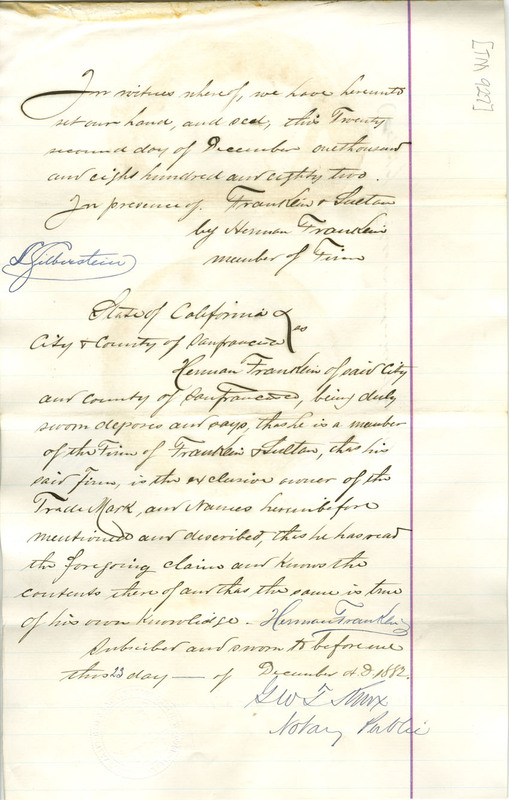 [TM 9227]
In witness where of, we have hereunto
set our hand, and seal, this Twenty
second day of December one thousand
and eight hundred and eighty two.
In presence of, Franklin & Sultan
by Herman Franklin
member of Firm
State of California
City & County of Sanfrancisco ss
Herman Franklin of said City
and County of Sanfrancisco, being duly
sworn deposes and says, that he is a member
of the Firm of Franklin & Sultan, that his
said Firm, is the exclusive owner of the
Trade Mark, and Names hereinbefore
mentioned and described, that he has read
the foregoing claim and knows the
contents there of and that the same is true
of his own Knowledge - Herman Franklin
Subscribed and sworn to before me
this 23 day — of December A.D. 1882.
Geo T Knox
Notary Public